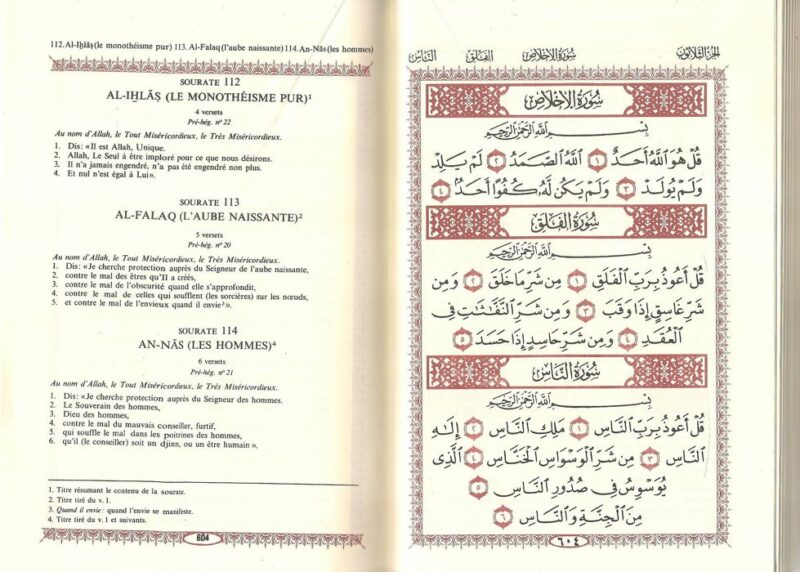 112.Al-Iẖlāṣ (le monothéisme pur) 113. Al-Falaq (l'aube naissante) 114. An-Nās (les hommes)
SOURATE 112
AL-IẖLĀṢ (LE MONOTHÉISME PUR)¹
4 versets
Pré-hég. nº 22
Au nom d'Allah, le Tout Miséricordieux, le Très Miséricordieux.
1. Dis: «Il est Allah, Unique.
2. Allah, Le Seul à être imploré pour ce que nous désirons.
3. Il n'a jamais engendré, n'a pas été engendré non plus.
4. Et nul n'est égal à Lui».
SOURATE 113
AL-FALAQ (L'AUBE NAISSANTE)²
5 versets
Pré-hég. nº 20
Au nom d'Allah, le Tout Miséricordieux, le Très Miséricordieux.
1. Dis: «Je cherche protection auprès du Seigneur de l'aube naissante,
2. contre le mal des êtres qu'Il a créés,
3. contre le mal de l'obscurité quand elle s'approfondit,
4. contre le mal de celles qui soufflent (les sorcières) sur les nœuds,
5. et contre le mal de l'envieux quand il envie³».
SOURATE 114
AN-NĀS (LES HOMMES)⁴
6 versets
Pré-hég. nº 21
Au nom d'Allah, le Tout Miséricordieux, le Très Miséricordieux.
1. Dis: «Je cherche protection auprès du Seigneur des hommes.
2. Le Souverain des hommes,
3. Dieu des hommes,
4. contre le mal du mauvais conseiller, furtif,
5. qui souffle le mal dans les poitrines des hommes,
6. qu'il (le conseiller) soit un djinn, ou un être humain».
1. Titre résumant le contenu de la sourate.
2. Titre tiré du v. 1.
3. Quand il envie: quand l'envie se manifeste.
4. Titre du v. 1 et suivants.
604
الجزء الثلاثون سورة الإخلاص الفلق الناس
سُورَةُ الإِخْلَاصِ
بِسْمِ ٱللَّهِ ٱلرَّحْمَٰنِ ٱلرَّحِيمِ
قُلْ هُوَ ٱللَّهُ أَحَدٌ ١ ٱللَّهُ ٱلصَّمَدُ ٢ لَمْ يَلِدْ
وَلَمْ يُولَدْ ٣ وَلَمْ يَكُن لَّهُۥ كُفُوًا أَحَدٌ ٤
سُورَةُ الفَلَقِ
بِسْمِ ٱللَّهِ ٱلرَّحْمَٰنِ ٱلرَّحِيمِ
قُلْ أَعُوذُ بِرَبِّ ٱلْفَلَقِ ١ مِن شَرِّ مَا خَلَقَ ٢ وَمِن
شَرِّ غَاسِقٍ إِذَا وَقَبَ ٣ وَمِن شَرِّ ٱلنَّفَّٰثَٰتِ فِى
ٱلْعُقَدِ ٤ وَمِن شَرِّ حَاسِدٍ إِذَا حَسَدَ ٥
سُورَةُ النَّاسِ
بِسْمِ ٱللَّهِ ٱلرَّحْمَٰنِ ٱلرَّحِيمِ
قُلْ أَعُوذُ بِرَبِّ ٱلنَّاسِ ١ مَلِكِ ٱلنَّاسِ ٢ إِلَٰهِ
ٱلنَّاسِ ٣ مِن شَرِّ ٱلْوَسْوَاسِ ٱلْخَنَّاسِ ٤ ٱلَّذِى
يُوَسْوِسُ فِى صُدُورِ ٱلنَّاسِ ٥
مِنَ ٱلْجِنَّةِ وَٱلنَّاسِ ٦
٦٠٤